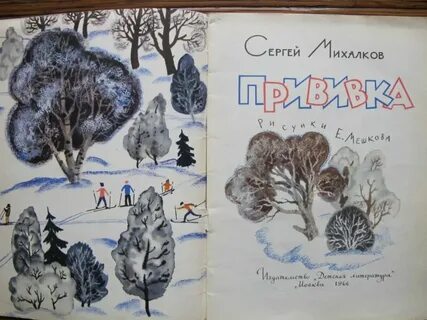 Сергей Михалков
ПРИВИВКА
Рисунки Е. Мешкова
Издательство „Детская литература"
Москва 1966